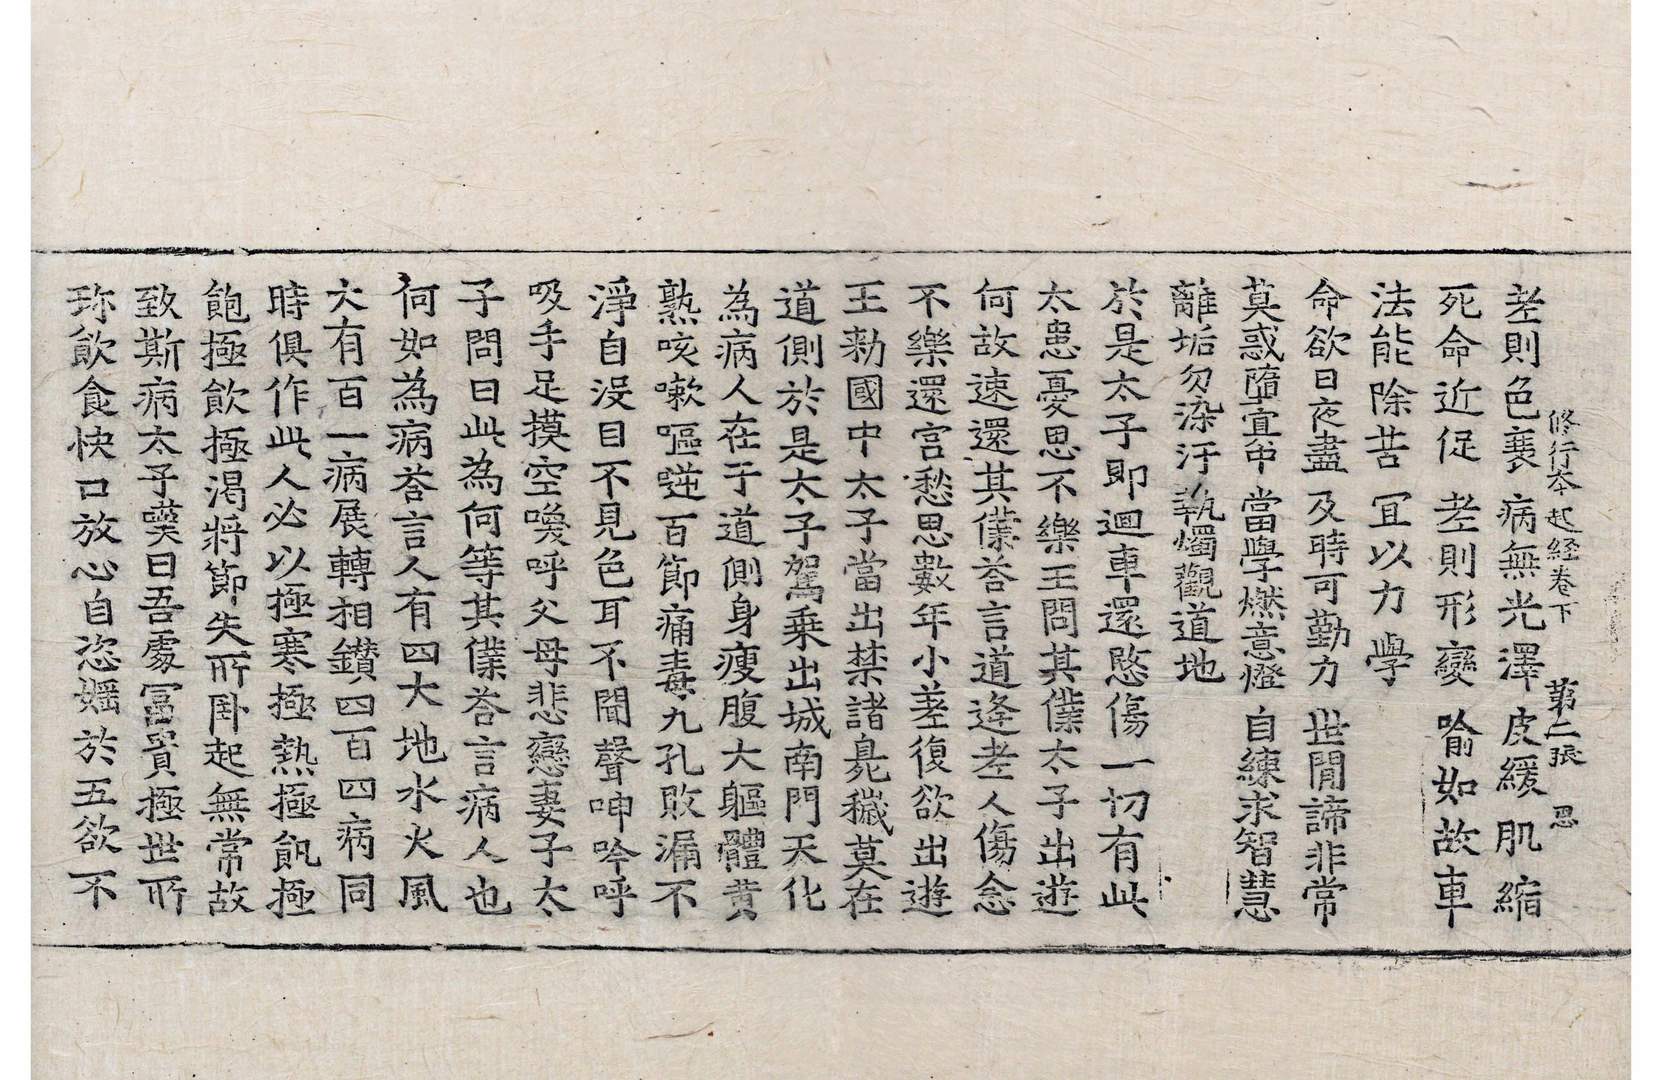 修行本起経卷下 第二張 思
老則色衰 病無光澤 皮緩肌縮
死命近促 老則形變 喻如故車
法能除苦 宜以力學
命欲日夜盡 及時可勤力 世閒諦非常
莫惑墮冥中 當學燃意燈 自練求智慧
離垢勿染汙 執燭觀道地
於是太子即迴車還愍傷一切有此
太患憂思不樂王問其僕太子出遊
何故速還其僕荅言道逢老人傷念
不樂還宮愁思數年小差復欲出遊
王勑國中太子當出禁諸臰穢莫在
道側於是太子駕乗出城南門天化
為病人在于道側身瘦腹大軀體黄
熟咳嗽嘔逆百節痛毒九孔敗漏不
淨自没目不見色耳不聞聲呻吟呼
吸手足摸空喚呼父母悲戀妻子太
子問曰此為何等其僕荅言病人也
何如為病荅言人有四大地水火風
大有百一病展轉相鑚四百四病同
時俱作此人必以極寒極熱極飢極
飽極飲極渴將節失所卧起無常故
致斯病太子嘆曰吾處冨貴極世所
珎飲食快口放心自恣婬於五欲不